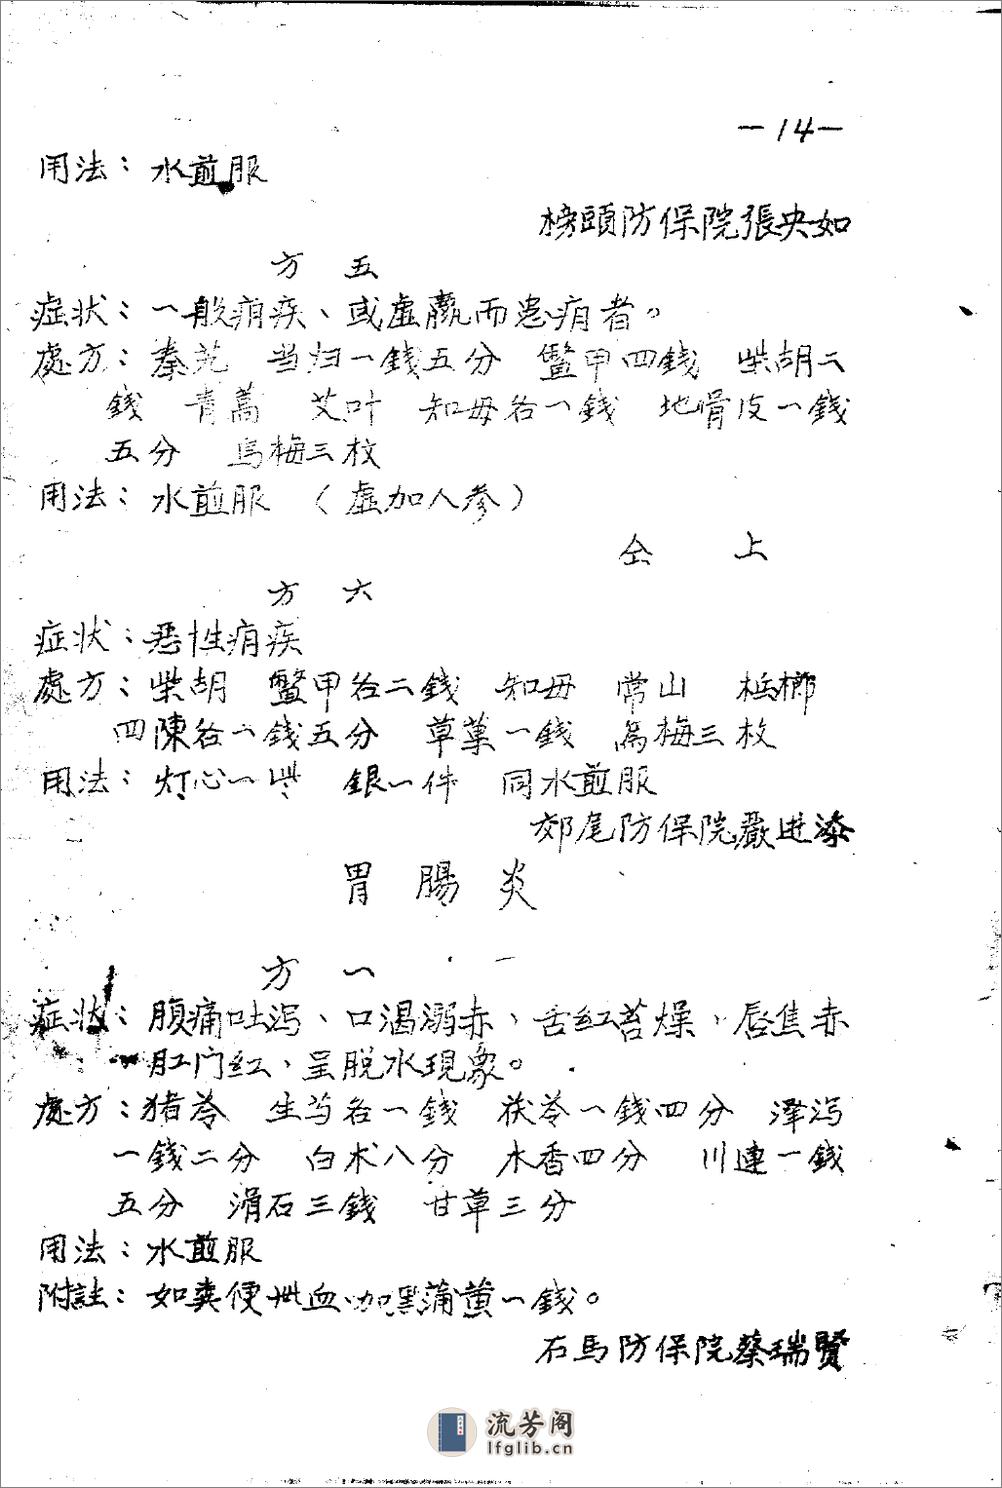 —14—
用法：水煎服
榜頭防保院張央如
方 五
症状：一般痟疾、或虚羸而患痟者。
處方：秦艽 当归一錢五分 鱉甲四錢 柴胡二
錢 青蒿 艾叶 知母各一錢 地骨皮一錢
五分 烏梅三枚
用法：水煎服 （虚加人参）
仝 上
方 六
症状：恶性痟疾
處方：柴胡 鱉甲各二錢 知母 常山 梹榔
四陳各一錢五分 草菓一錢 烏梅三枚
用法：灯心一 銀一件 同水煎服
郊尾防保院嚴进
胃 腸 炎
方 一
症状：腹痛吐泻、口渴溺赤、舌紅苔燥，唇焦赤
肛门紅，呈脱水現象。
處方：猪苓 生芍各一錢 茯苓一錢四分 泽泻
一錢二分 白术八分 木香四分 川連一錢
五分 滑石三錢 甘草三分
用法：水煎服
附註：如粪便泄血加黑蒲黄一錢。
石馬防保院蔡瑞賢
流芳阁
lfglib.cn